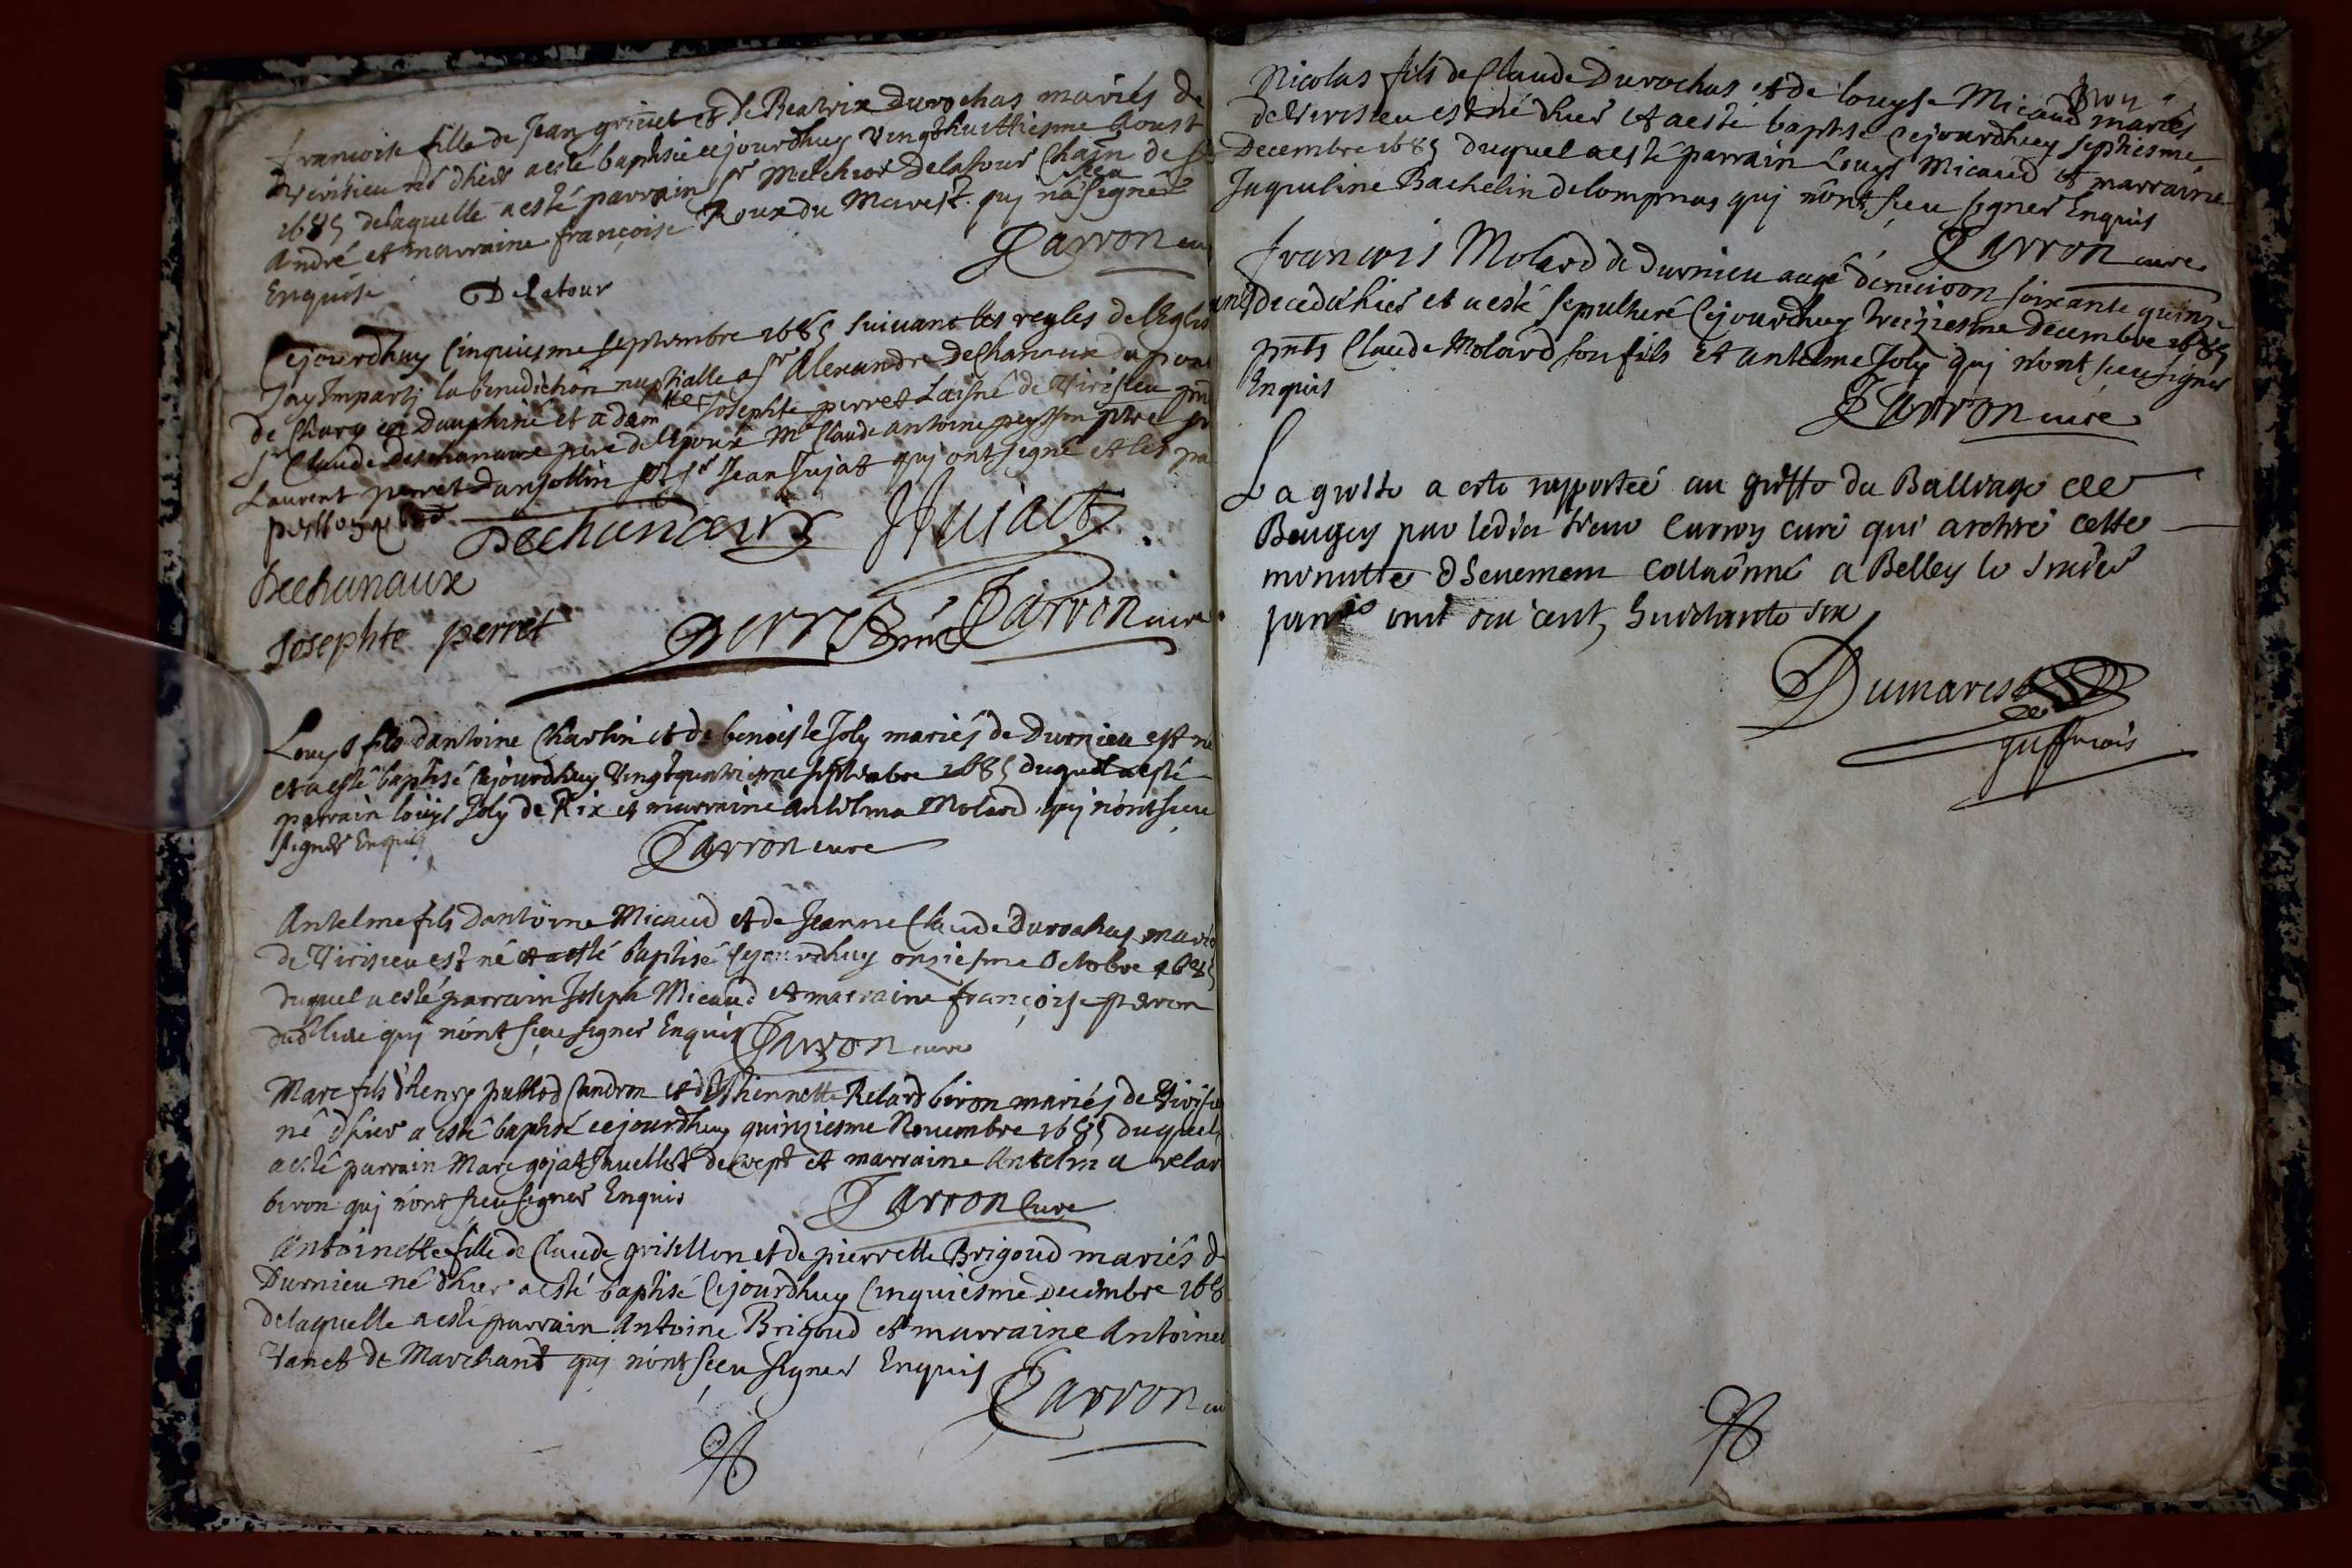 francoise fille de Jean grinet et de Beatrix durochas mariés de
Virisieu né dhier aesté baptisée cejourdhuy vingthuittiesme Aoust
1685 delaquelle aesté parrain sr Melchior Delatour Chain de st
André et marraine françoise Roux du Marest quj na sceu signer
Enquise
Carron cu
Delatour
Cejourdhuy Cinquiesme septembre 1685 suivant les regles de lEglis
Jay Imparti la benediction nuptialle a sr Alexandre Dechanaux du pont
de Chery en Dauphiné et a dam lle Josephte perret Laisné de Virisieu pnt
sr Claude deschanaux pere de lEpoux Me Claude antoine peysson ptre sr
Laurent perret Danjollin et sr Jean Jujat quj ont signé et les pa
Dechanaux JJujat
Dechanaux
Josephte perret
Perret Carron curé
Louys fils dantoine Charlin et de benoiste Joly mariés de Durnieu est né
et aesté baptisé Cejourdhuy vingtquatriesme septembre 1685 duquel aesté
parrain loüys Joly de Rix et marraine Antelma Molard quj nont sceu
signer Enquis
Carron curé
Antelme fils dantoine Micaud et de Jeanne Claude Durochas mariés
de Virisieu est né et aesté baptisé Cejourdhuy onziesme Octobre 1685
duquel aesté parrain Joseph Micaud et marraine françoise peron
dud lieu quj nont sceu signer Enquis Carron curé
Marc fils dhenry pulliod Candron et dEsthiennette Relard biron mariés de Virisieu
né dhier a esté baptisé cejourdhuy quinziesme Novembre 1685 duquel
aesté parrain Marc gojat Javellot de Crept et marraine Antelma relar
biron quj nont sceu signer Enquis
Carron Curé
Antoinette fille de Claude grisellon et de pierrette Brigoud mariés de
Durnieu né dhier aesté baptisé Cejourdhuy Cinquiesme Decembre 168
delaquelle aesté parrain Antoine Brigoud et marraine Antoinet
Janet de Marchant quj nont sceu signer Enquis
Carron cu
Nicolas fils de Claude Durochas et de louyse Micaud mariés
de Virisieu est né dhier et aesté baptisé Cejourdhuy septiesme
Decembre 1685 duquel aesté parrain Louys Micaud et marraine
Jaqueline Bachelin delompnas quj nont sceu signer Enquis
Carron curé
francois Molard de Durnieu aagé denviron soixante quinze
ans decedé hier et aesté sepulturé Cejourdhuy treiziesme decembre 1685
pnts Claude Molard son fils et antelme Joly quj nont sceu signer
Enquis
Carron curé
La grosse a esté rapportée au greffe du Balliage de
Beugey par ledit sieur Carron curé qui a retiré cette
minutte dheuement collaonné a Belley le
janvier mil six cent huictante six
Dumarest
greffier